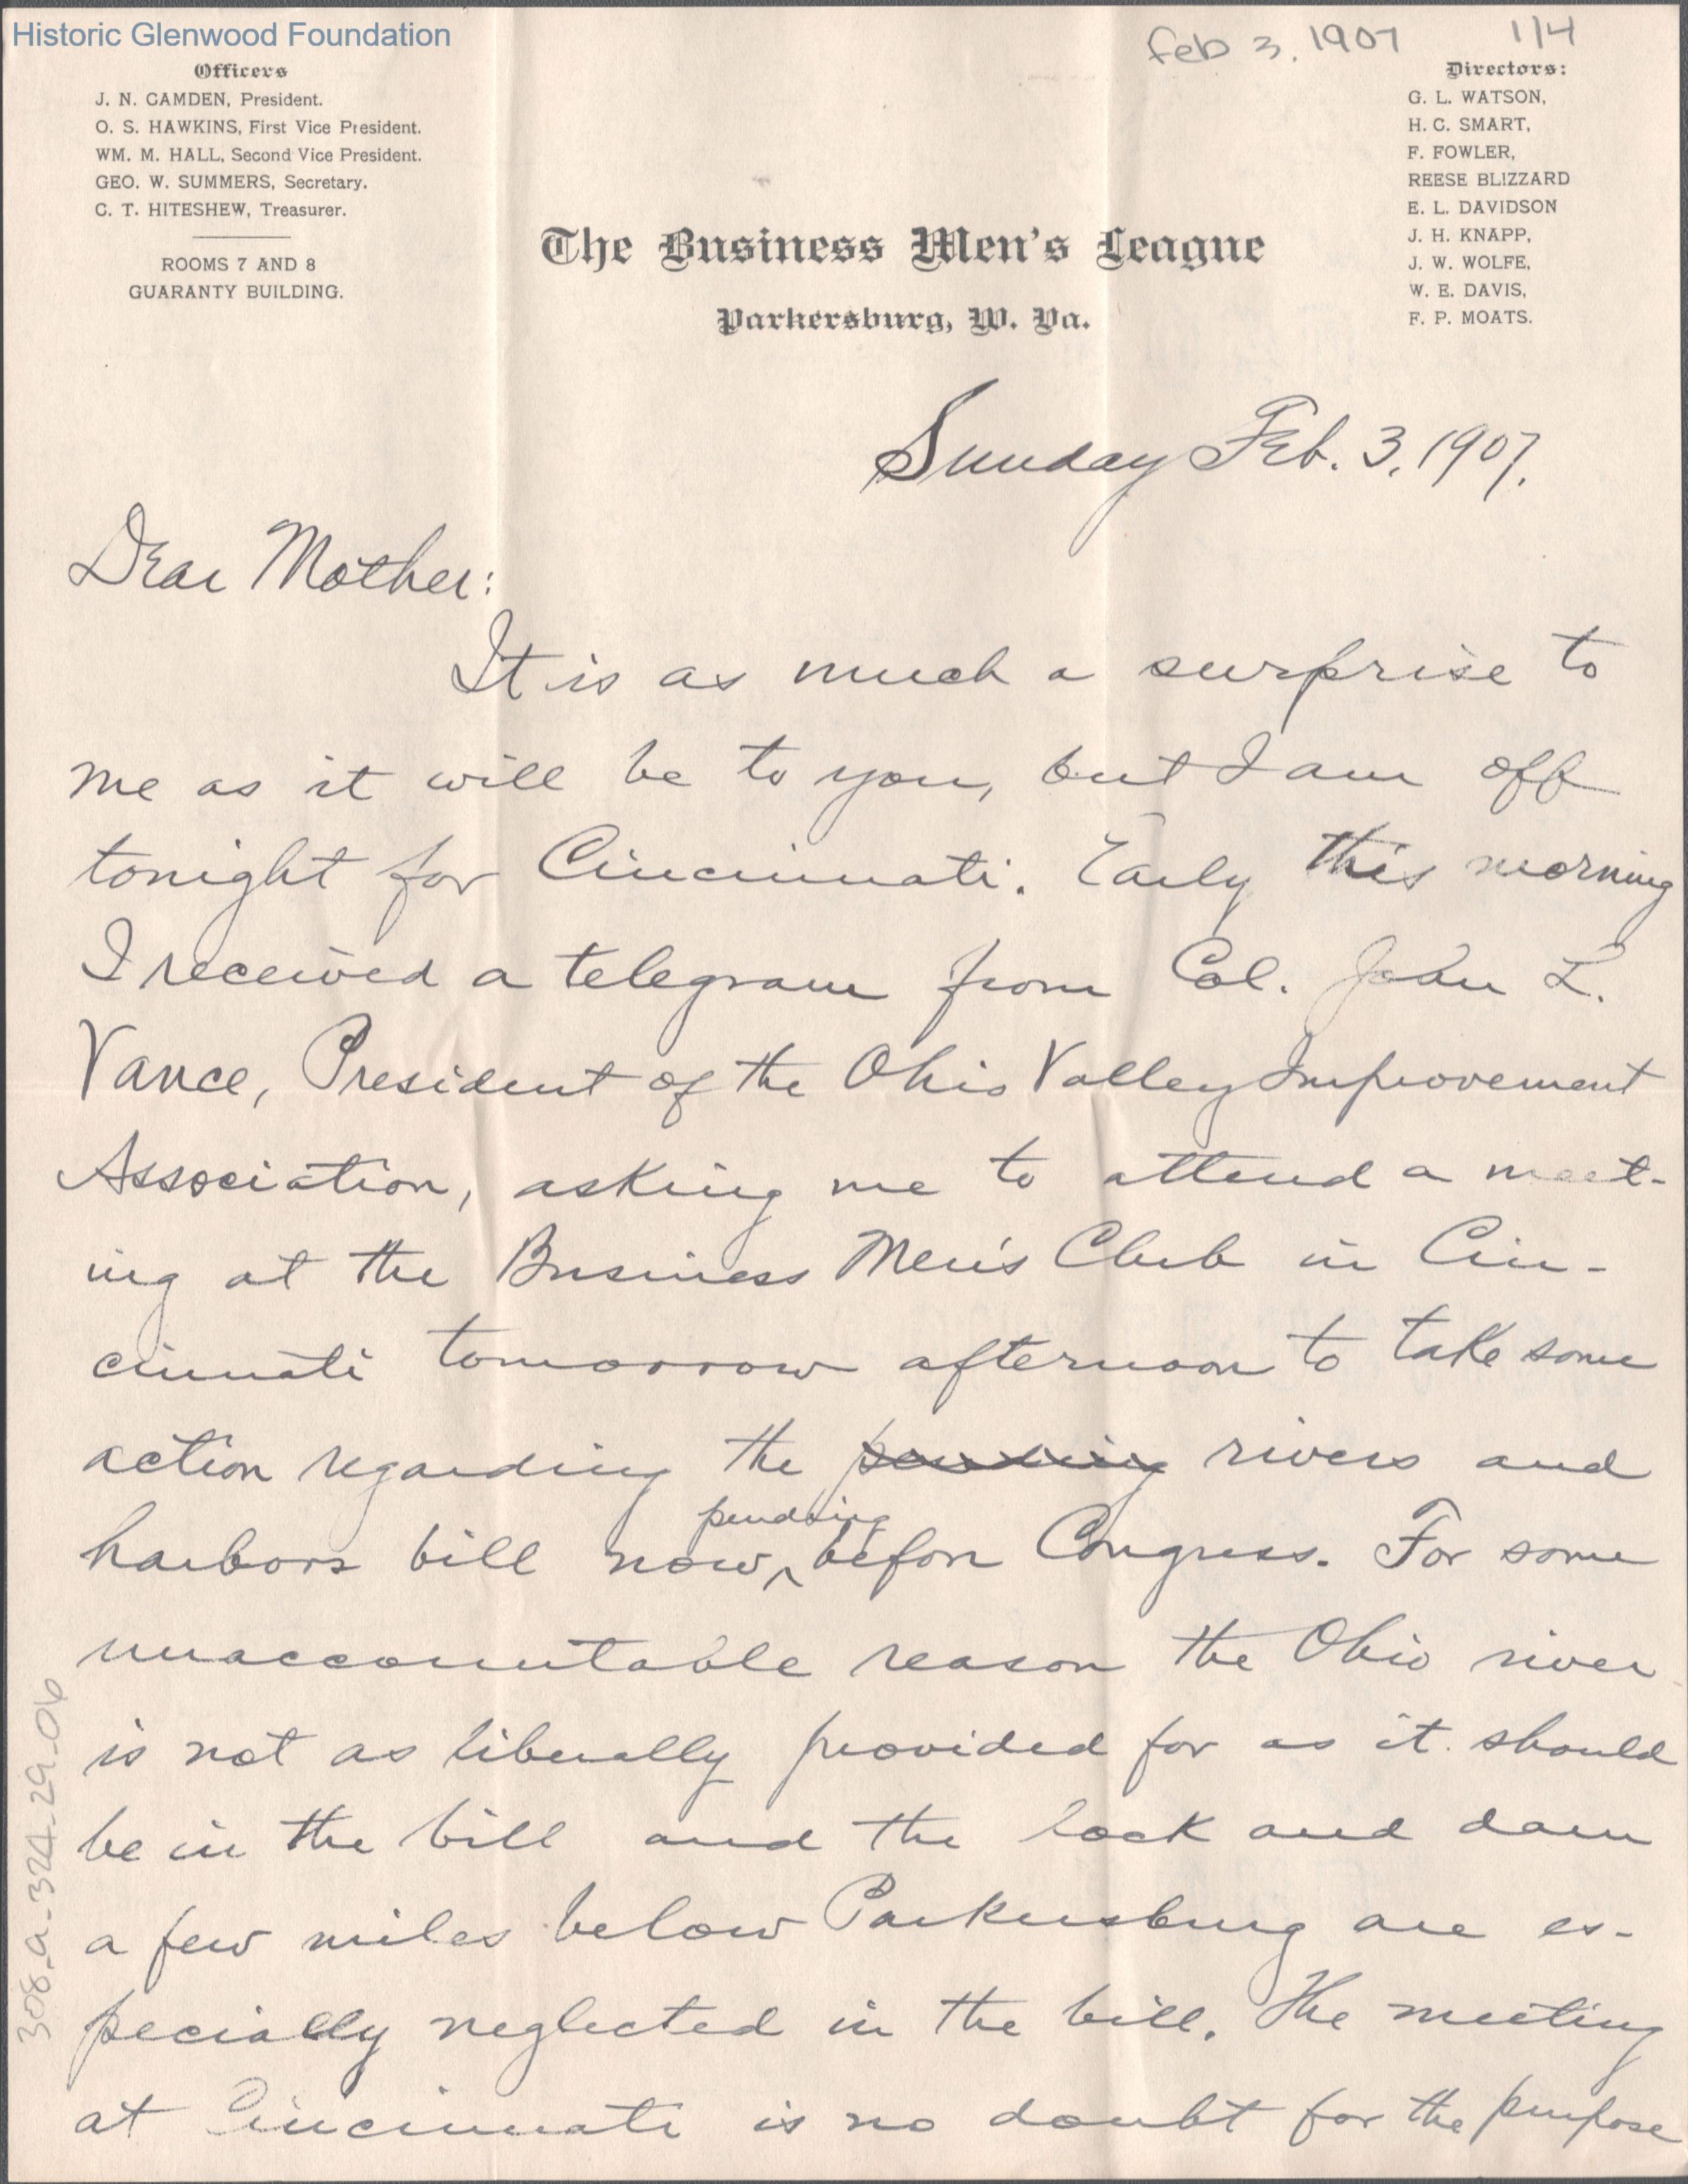 Historic Glenwood Foundation
Feb 3, 1907
1/4
Officers
J. N. CAMDEN, President.
O. S. HAWKINS, First Vice President.
WM. M. HALL, Second Vice President.
GEO. W. SUMMERS, Secretary.
C. T. HITESHEW, Treasurer.
ROOMS 7 AND 8
GUARANTY BUILDING.
Directors:
G. L. WATSON,
H. C. SMART,
F. FOWLER,
REESE BLIZZARD
E. L. DAVIDSON
J. H. KNAPP,
J. W. WOLFE,
W. E. DAVIS,
F. P. MOATS.
The Business Men's League
Parkersburg, W. Va.
Sunday Feb. 3, 1907.
Dear Mother:
It is as much a surprise to
me as it will be to you, but I am off
tonight for Cincinnati. Early this morning
I received a telegram from Col. John L.
Vance, President of the Ohio Valley Improvement
Association, asking me to attend a meet-
ing at the Business Men's Club in Cin-
cinnati tomorrow afternoon to take some
action regarding the pending rivers and
pending
harbors bill now, ^ before Congress. For some
unaccountable reason the Ohio river
is not as liberally provided for as it should
be in the bill and the lock and dam
a few miles below Parkersburg are es-
pecially neglected in the bill. The meeting
at Cincinnati is no doubt for the purpose
308_a_324_29_06